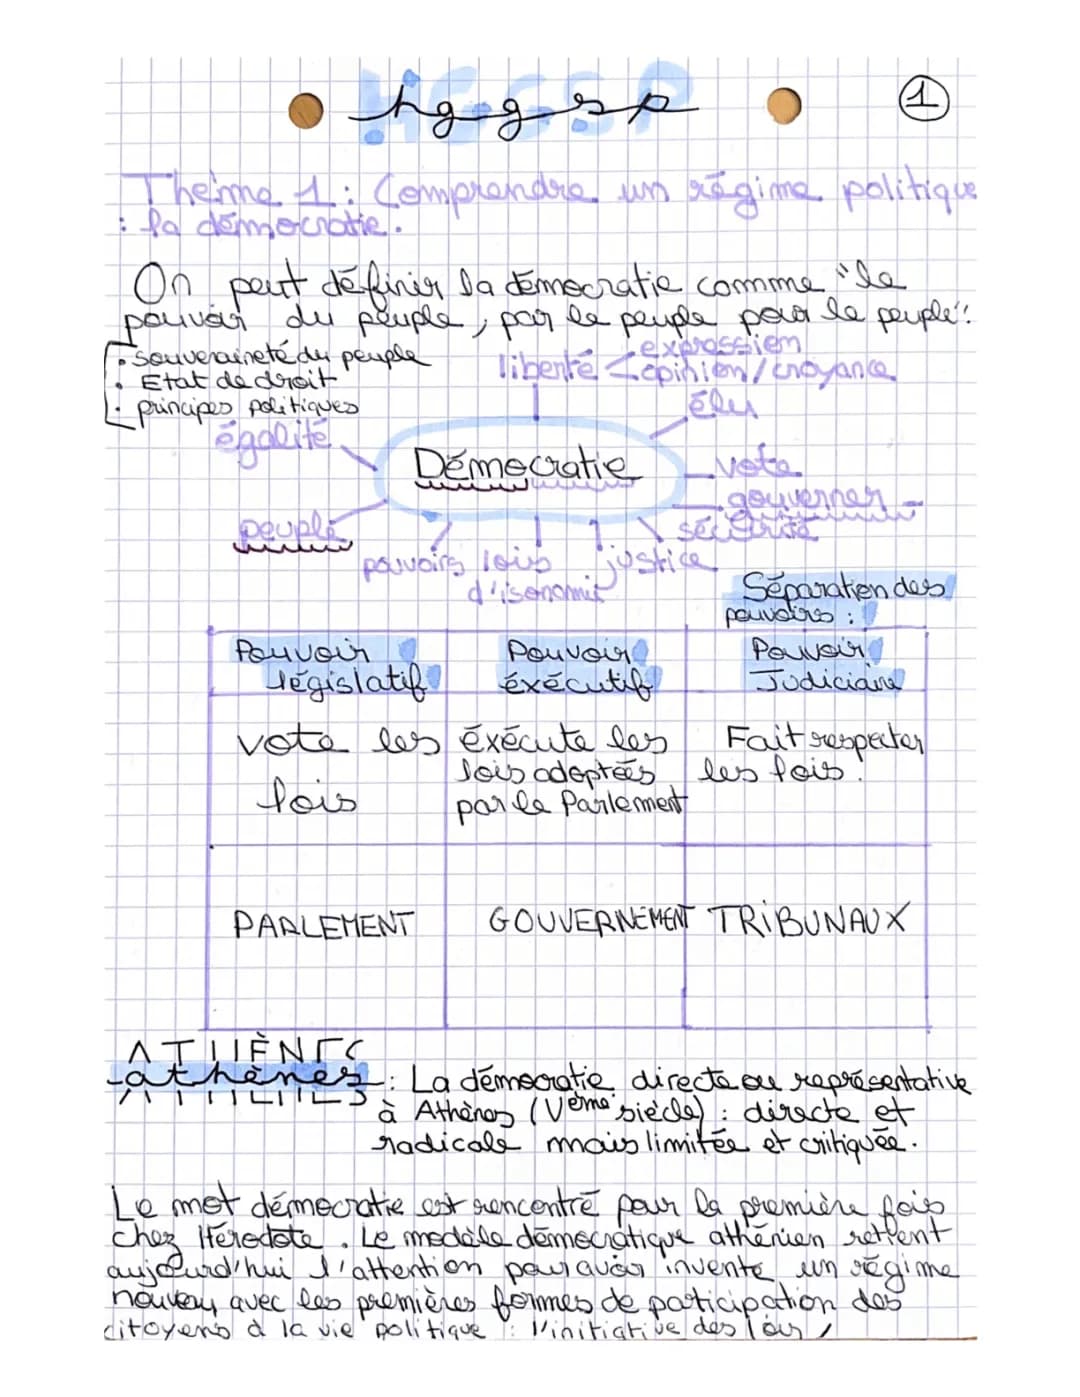 HGGSP
hggsp
1
Theme 1 : Comprendre un régime politique
: la démocratie.
On peut définir la démocratie comme "le
pouvoir du peuple, par le peuple pour le peuple".
• Souveraineté du peuple
• Etat de droit
• principes politiques
liberté < expression
opinion / croyance
élu
égalité
Démocratie
vote
gouverner
peuple
sécurité
pouvoirs
lois
d'isonomie
justice
Séparation des
pouvoirs :
Pouvoir législatif
Pouvoir éxécutif
Pouvoir Judiciaire
vote les lois
éxécute les lois adoptées par le Parlement
Fait respecter les lois.
PARLEMENT
GOUVERNEMENT
TRIBUNAUX
ATHÈNES
athènes : La démocratie directe ou représentative
à Athènes (Vème siècle) : directe et
radicale mais limitée et critiquée.
Le mot démocratie est rencontré pour la première fois
chez Hérodote. Le modèle démocratique athénien retient
aujourd'hui l'attention pour avoir inventé un régime
nouveau avec les premières formes de participation des
citoyens à la vie politique : l'initiative des lois,